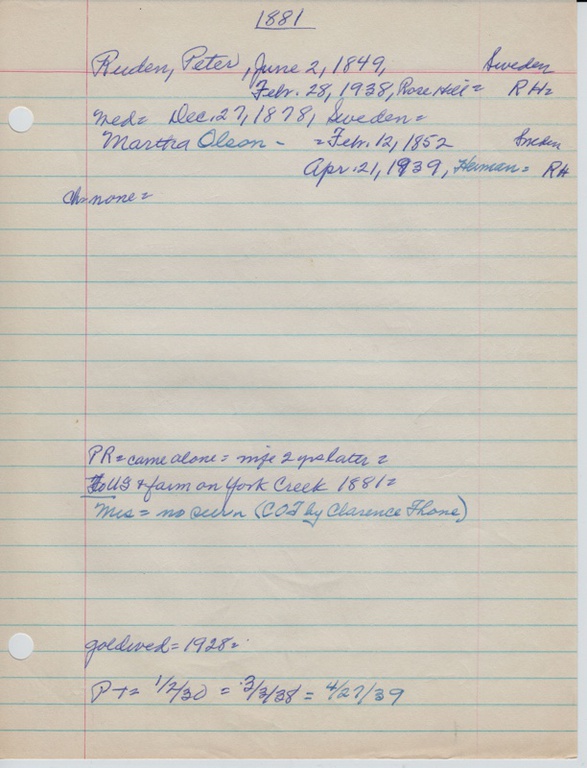 1881
Ruden, Peter, June 2, 1849, Sweden
Febr. 28, 1938, Rose Hill = RH=
Wed= Dec. 27, 1878, Sweden=
Martha Olson - =Febr. 12, 1852 Sweden
Apr. 21, 1939, Heiman= RH
Ch=none=
PR=came alone= wife 2 yrs later=
To US & farm on York Creek 1881=
Mrs = no (COT by Clarence Thone)
goldwed=1928=
P+= 1/2/30 = 3/3/38 = 4/27/39